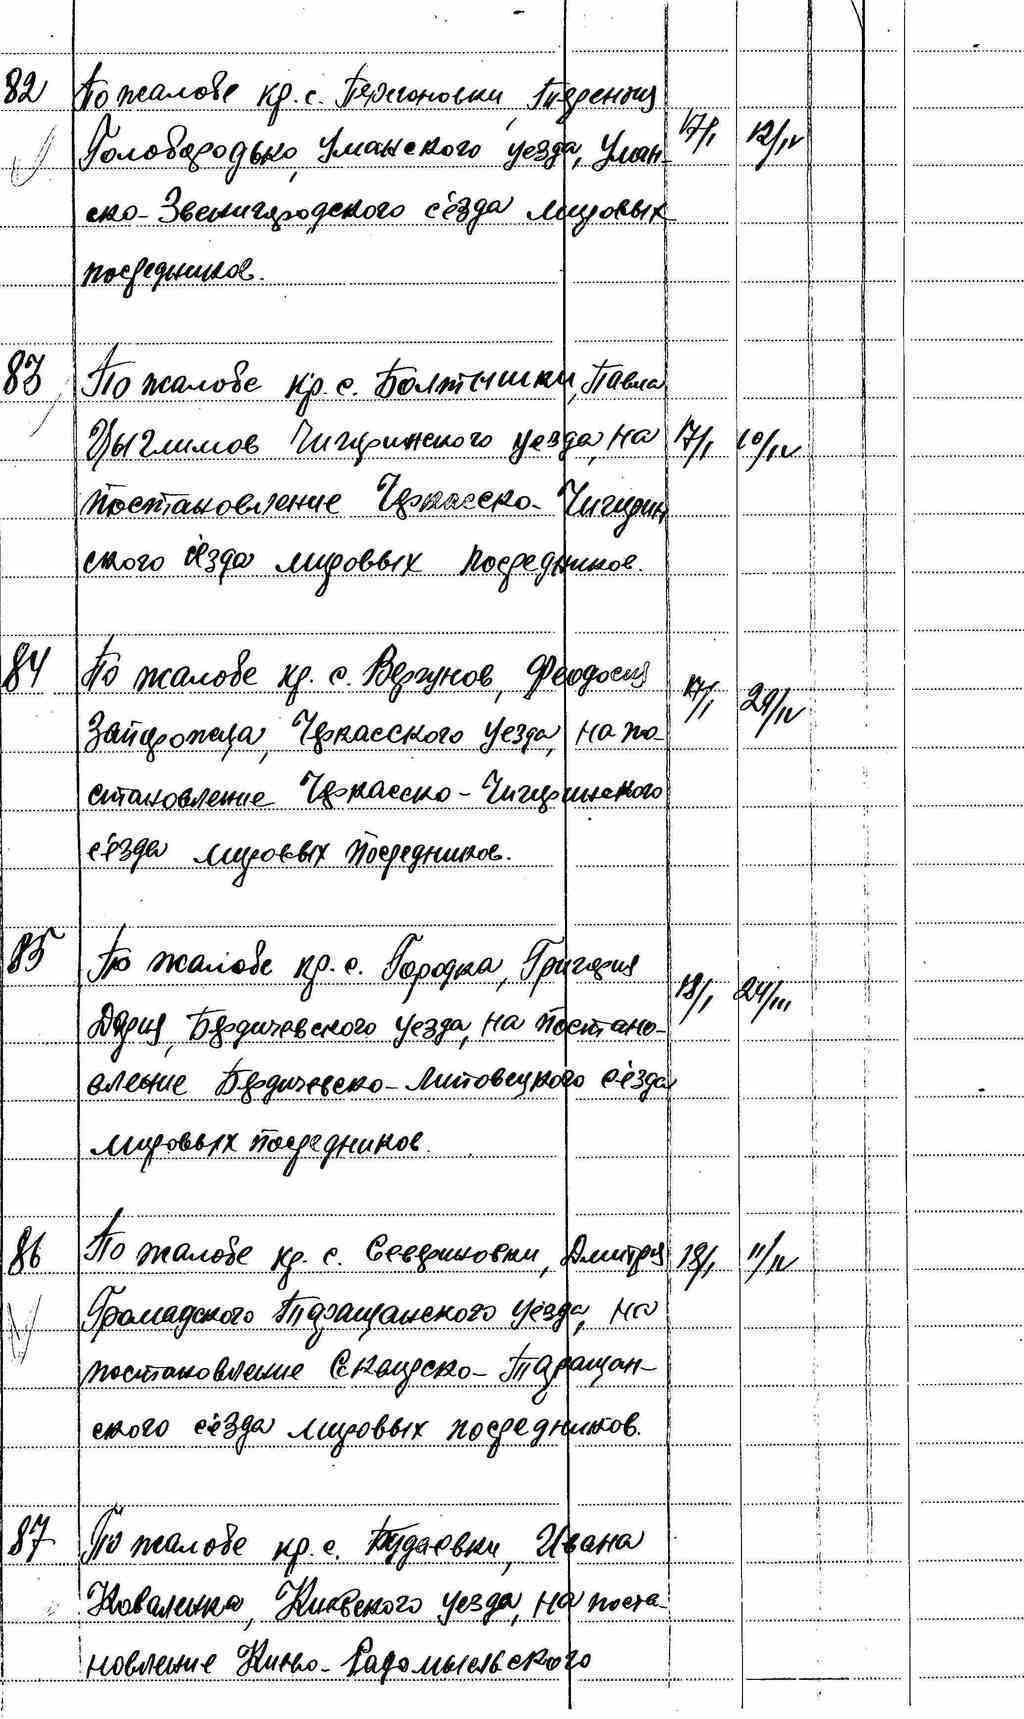 82 По жалобе кр. с. Перегоновки, Терентия
Голобородько, Уманского уезда, Уман- 17/I 12/IV
ско-Звенигородского сёзда мировых
посредников.
83 По жалобе кр. с. Болтышки, Павла
Чигиринского уезда, на 17/I 10/IV
постановление Черкасско-Чигирин
ского сёзда мировых посредников.
84 По жалобе кр. с. Вергунов, Феодосия
Запорожца, Черкасского уезда, на по- 17/I 29/IV
становление Черкасско-Чигиринского
сёзда мировых посредников.
85 По жалобе кр. с. Городка, Григория
Бердичевского уезда, на постано- 18/I 24/III
вление Бердичевско-Липовецкого сёзда
мировых посредников.
86 По жалобе кр. с. Севериновки, Дмитрия 18/I 11/IV
Громадского Таращанского уезда, на
постановление Сквирско-Таращан-
ского сёзда мировых посредников.
87 По жалобе кр. с. Будаевки, Ивана
Коваленка, Киевского уезда, на поста-
новление Киево-Радомысльского